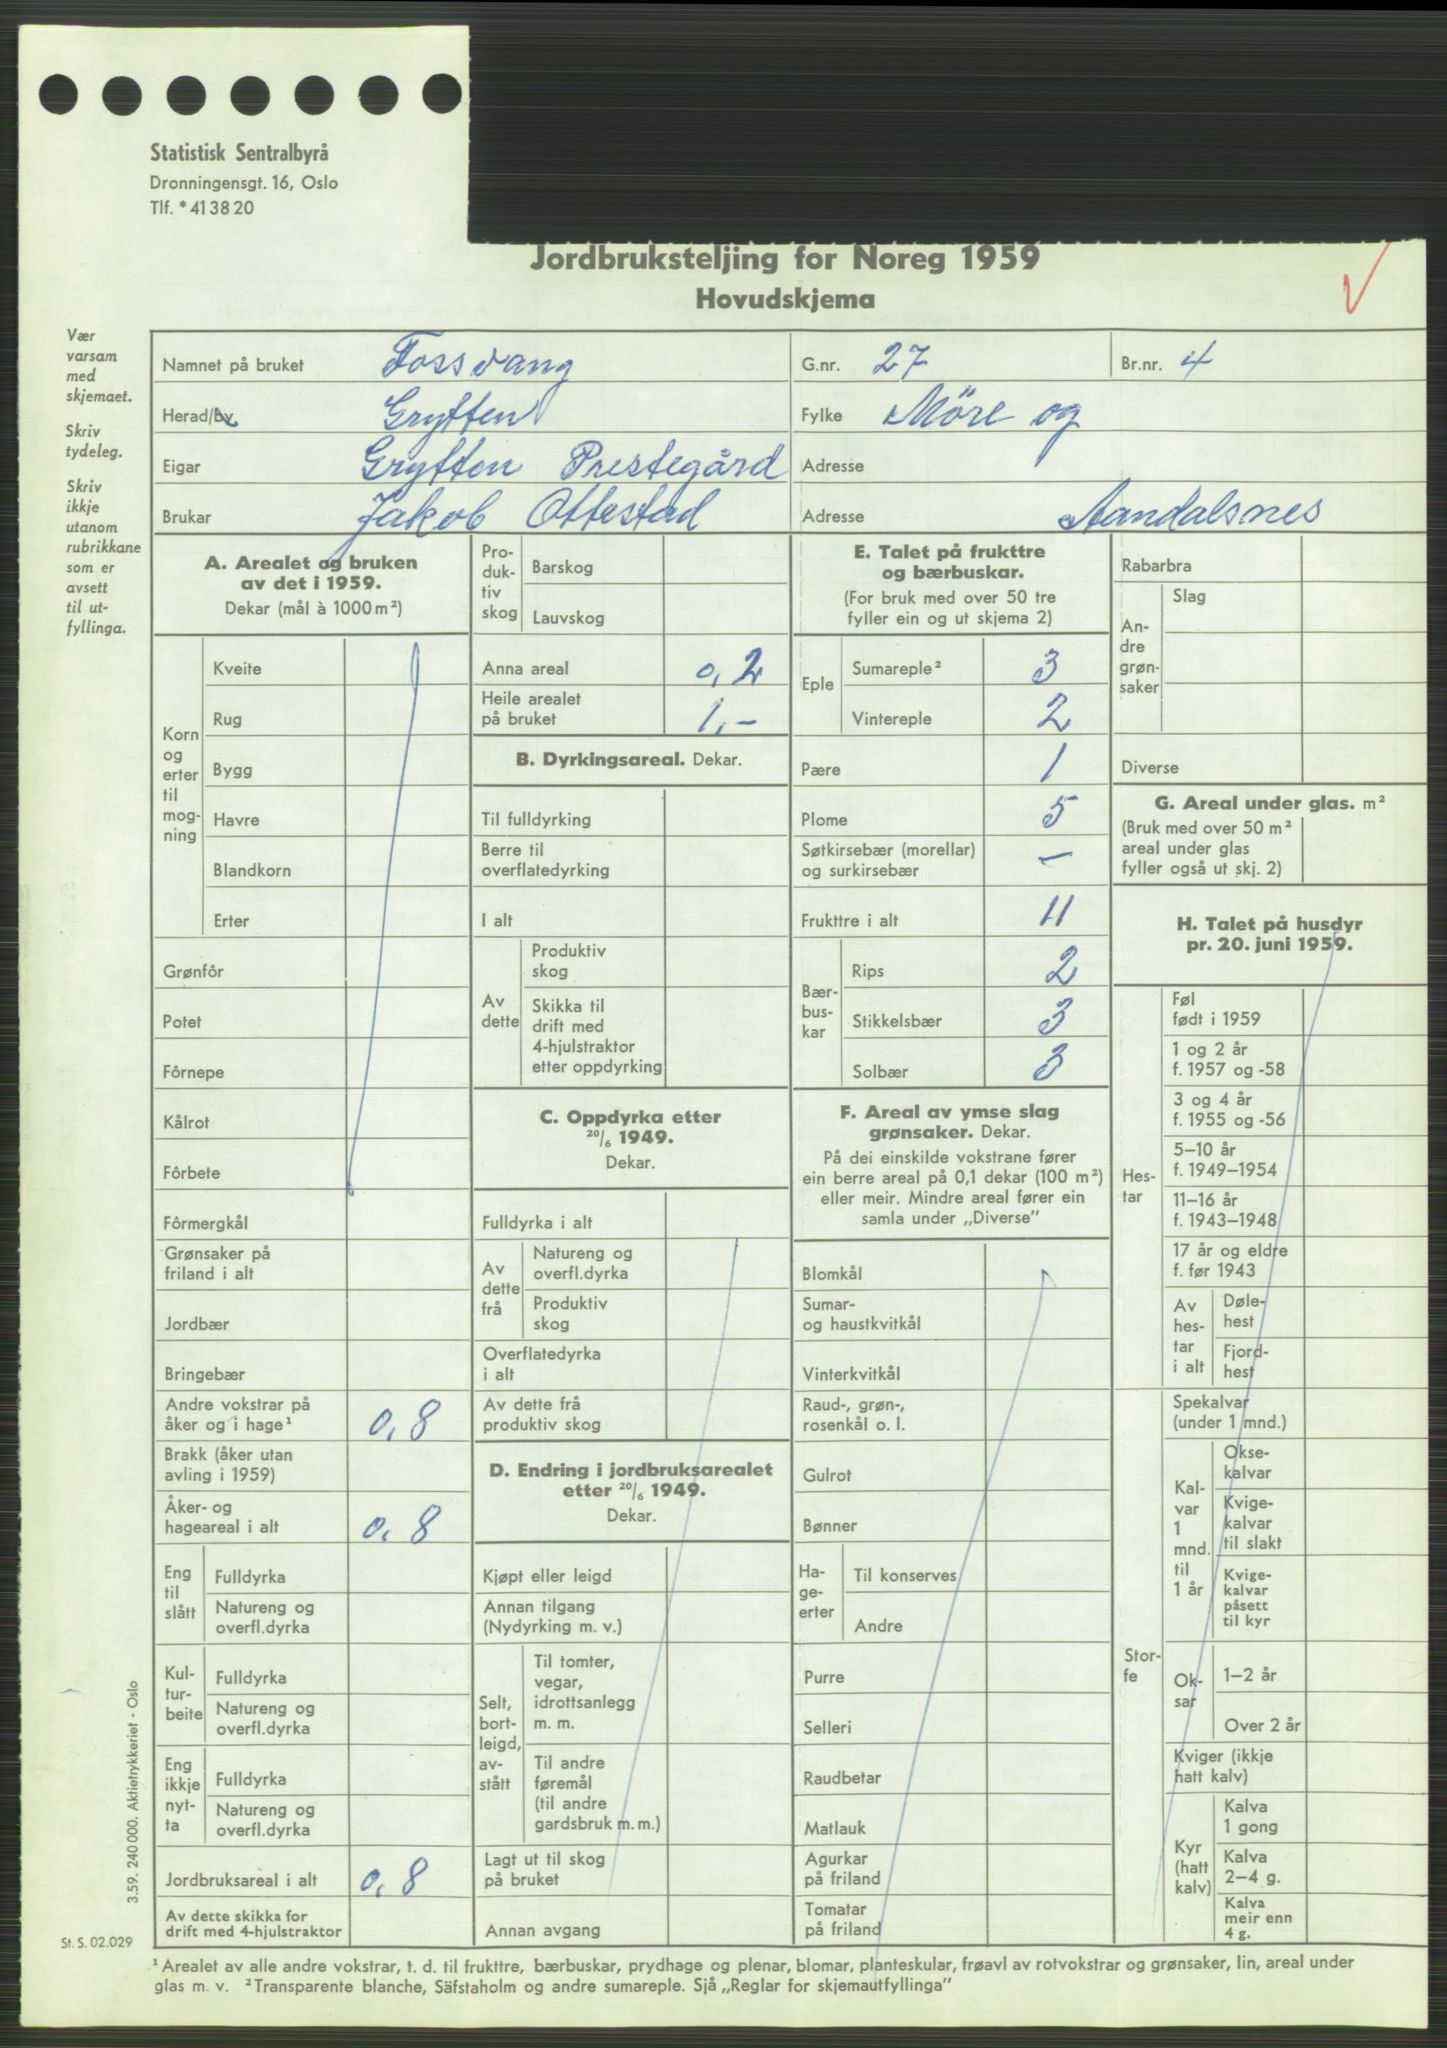 Statistisk Sentralbyrå
Dronningensgt. 16, Oslo
Tlf. *41 38 20
Jordbruksteljing for Noreg 1959
Hovudskjema
Vær
varsam
med
skjemaet.
Skriv
tydeleg.
Skriv
ikkje
utanom
rubrikkane
som er
avsett
til ut-
fyllinga.
Namnet på bruket Fossvang G.nr. 27 Br.nr. 4
Herad/by Grytten Fylke Möre og
Eigar Grytten Prestegård Adresse
Brukar Jakob Ottestad Adresse Aandalsnes
A. Arealet og bruken
av det i 1959.
Dekar (mål à 1000 m²)
Korn
og
erter
til
mog-
ning
Kveite
Rug
Bygg
Havre
Blandkorn
Erter
Grønfôr
Potet
Fôrnepe
Kålrot
Fôrbete
Fôrmergkål
Grønsaker på
friland i alt
Jordbær
Bringebær
Andre vokstrar på
åker og i hage¹ 0,8
Brakk (åker utan
avling i 1959)
Åker- og
hageareal i alt 0,8
Eng
til
slått
Fulldyrka
Natureng og
overfl.dyrka
Kul-
tur-
beite
Fulldyrka
Natureng og
overfl.dyrka
Eng
ikkje
nyt-
ta
Fulldyrka
Natureng og
overfl.dyrka
Jordbruksareal i alt 0,8
Av dette skikka for
drift med 4-hjulstraktor
Pro-
duk-
tiv
skog
Barskog
Lauvskog
Anna areal 0,2
Heile arealet
på bruket 1,-
B. Dyrkingsareal. Dekar.
Til fulldyrking
Berre til
overflatedyrking
I alt
Av
dette
Produktiv
skog
Skikka til
drift med
4-hjulstraktor
etter oppdyrking
C. Oppdyrka etter
20/6 1949.
Dekar.
Fulldyrka i alt
Av
dette
frå
Natureng og
overfl.dyrka
Produktiv
skog
Overflatedyrka
i alt
Av dette frå
produktiv skog
D. Endring i jordbruksarealet
etter 20/6 1949.
Dekar.
Kjøpt eller leigd
Annan tilgang
(Nydyrking m. v.)
Selt,
bort-
leigd,
av-
stått
Til tomter,
vegar,
idrottsanlegg
m. m.
Til andre
føremål
(til andre
gardsbruk m. m.)
Lagt ut til skog
på bruket
Annan avgang
E. Talet på frukttre
og bærbuskar.
(For bruk med over 50 tre
fyller ein og ut skjema 2)
Eple
Sumareple² 3
Vintereple 2
Pære 1
Plome 5
Søtkirsebær (morellar)
og surkirsebær –
Frukttre i alt 11
Bær-
bus-
kar
Rips 2
Stikkelsbær 3
Solbær 3
F. Areal av ymse slag
grønsaker. Dekar.
På dei einskilde vokstrane fører
ein berre areal på 0,1 dekar (100 m²)
eller meir. Mindre areal fører ein
samla under „Diverse”
Blomkål
Sumar-
og haustkvitkål
Vinterkvitkål
Raud-, grøn-,
rosenkål o. l.
Gulrot
Bønner
Ha-
ge-
erter
Til konserves
Andre
Purre
Selleri
Raudbetar
Matlauk
Agurkar
på friland
Tomatar
på friland
Rabarbra
An-
dre
grøn-
saker
Slag
Diverse
G. Areal under glas. m²
(Bruk med over 50 m²
areal under glas
fyller også ut skj. 2)
H. Talet på husdyr
pr. 20. juni 1959.
Hes-
tar
Føl
født i 1959
1 og 2 år
f. 1957 og -58
3 og 4 år
f. 1955 og -56
5–10 år
f. 1949–1954
11–16 år
f. 1943–1948
17 år og eldre
f. før 1943
Av
hes-
tar
i alt
Døle-
hest
Fjord-
hest
Stor-
fe
Spekalvar
(under 1 mnd.)
Kal-
var
1
mnd.
til
1 år
Okse-
kalvar
Kvige-
kalvar
til slakt
Kvige-
kalvar
påsett
til kyr
Ok-
sar
1–2 år
Over 2 år
Kviger (ikkje
hatt kalv)
Kyr
(hatt
kalv)
Kalva
1 gong
Kalva
2–4 g.
Kalva
meir enn
4 g.
3.59. 240 000. Aktietrykkeriet - Oslo
St. S. 02.029
¹ Arealet av alle andre vokstrar, t. d. til frukttre, bærbuskar, prydhage og plenar, blomar, planteskular, frøavl av rotvokstrar og grønsaker, lin, areal under
glas m. v. ² Transparente blanche, Säfstaholm og andre sumareple. Sjå „Reglar for skjemautfyllinga”